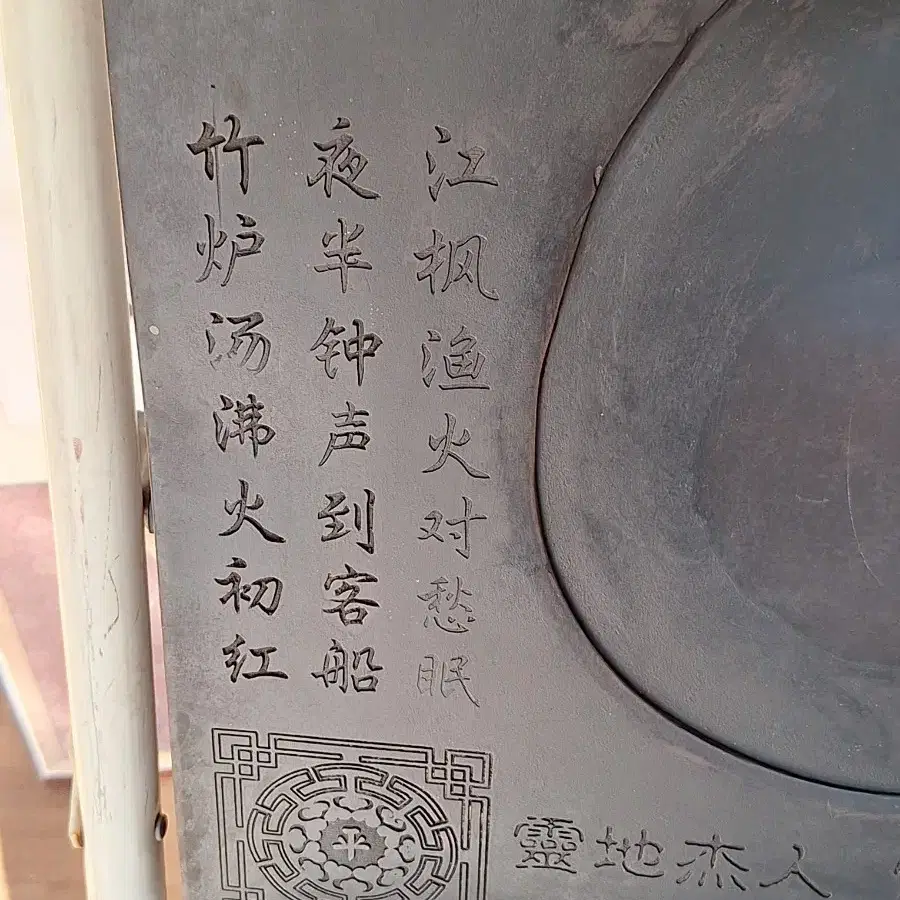 江枫渔火对愁眠
夜半钟声到客船
竹炉汤沸火初红
人杰地靈
平